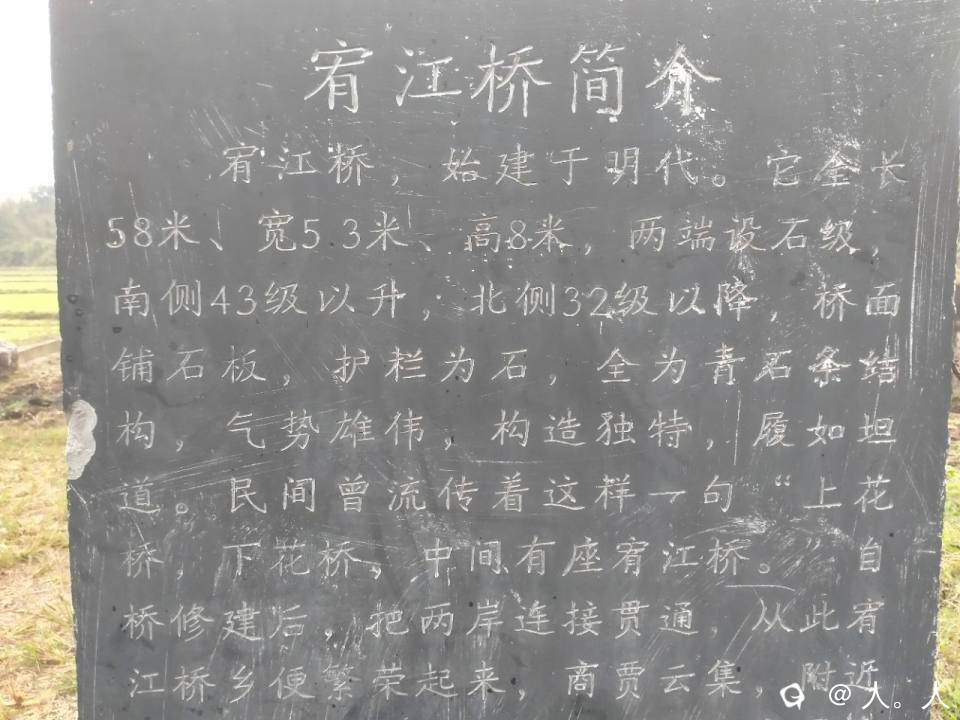 宥江桥简介
宥江桥，始建于明代。它全长
58米、宽5.3米、高8米，两端设石级，
南侧43级以升，北侧32级以降，桥面
铺石板，护栏为石，全为青石条结
构，气势雄伟，构造独特，履如坦
道。民间曾流传着这样一句“上花
桥，下花桥，中间有座宥江桥。”自
桥修建后，把两岸连接贯通，从此宥
江桥乡便繁荣起来，商贾云集，附近
@人。人